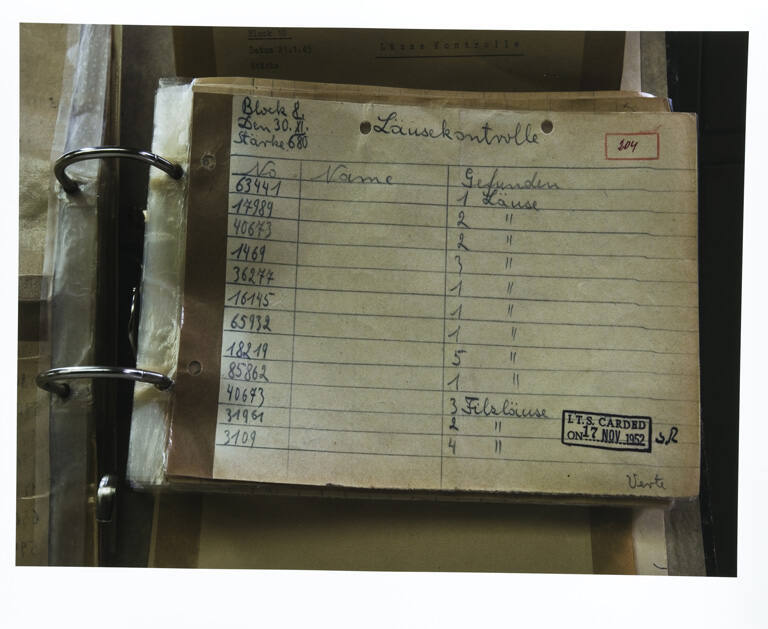 Block 10
Datum 21.1.45
Stärke
Läuse Kontrolle
Block 8.
Den 30. XI.
Stärke 680
Läusekontrolle
204
No. Name Gefunden
63441 1 Läuse
17989 2 "
40673 2 "
1469 3 "
36277 1 "
16145 1 "
65932 1 "
18219 5 "
85862 1 "
40673 3 Filzläuse
31961 2 "
3109 4 "
I.T.S. CARDED
ON 17 NOV 1952
Verte